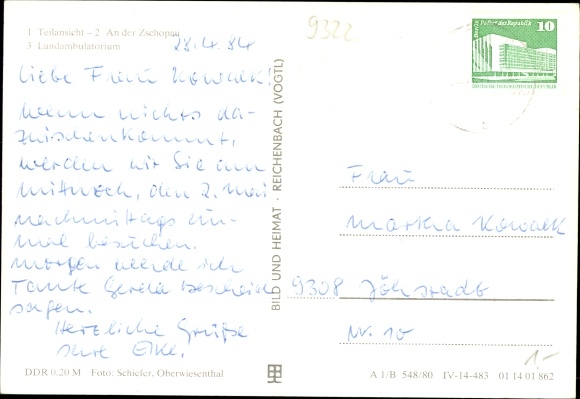 1 Teilansicht – 2 An der Zschopau
3 Landambulatorium
28.4.84
Liebe Frau Kowalk!
Wenn nichts da-
zwischenkommt,
werden wir Sie am
Mittwoch, den 2. Mai
nachmittags ein-
mal besuchen.
Morgen werde ich
Tante Gerda Bescheid
sagen.
Herzliche Grüße
Ihre Elke.
DDR 0,20 M Foto: Schiefer, Oberwiesenthal
BILD UND HEIMAT · REICHENBACH (VOGTL)
9322
10
Berlin, Palast der Republik
DEUTSCHE DEMOKRATISCHE REPUBLIK
Frau
Martha Kowalk
9308 Jöhstadt
Nr. 10
1,-
A 1/B 548/80 IV-14-483 01 14 01 862